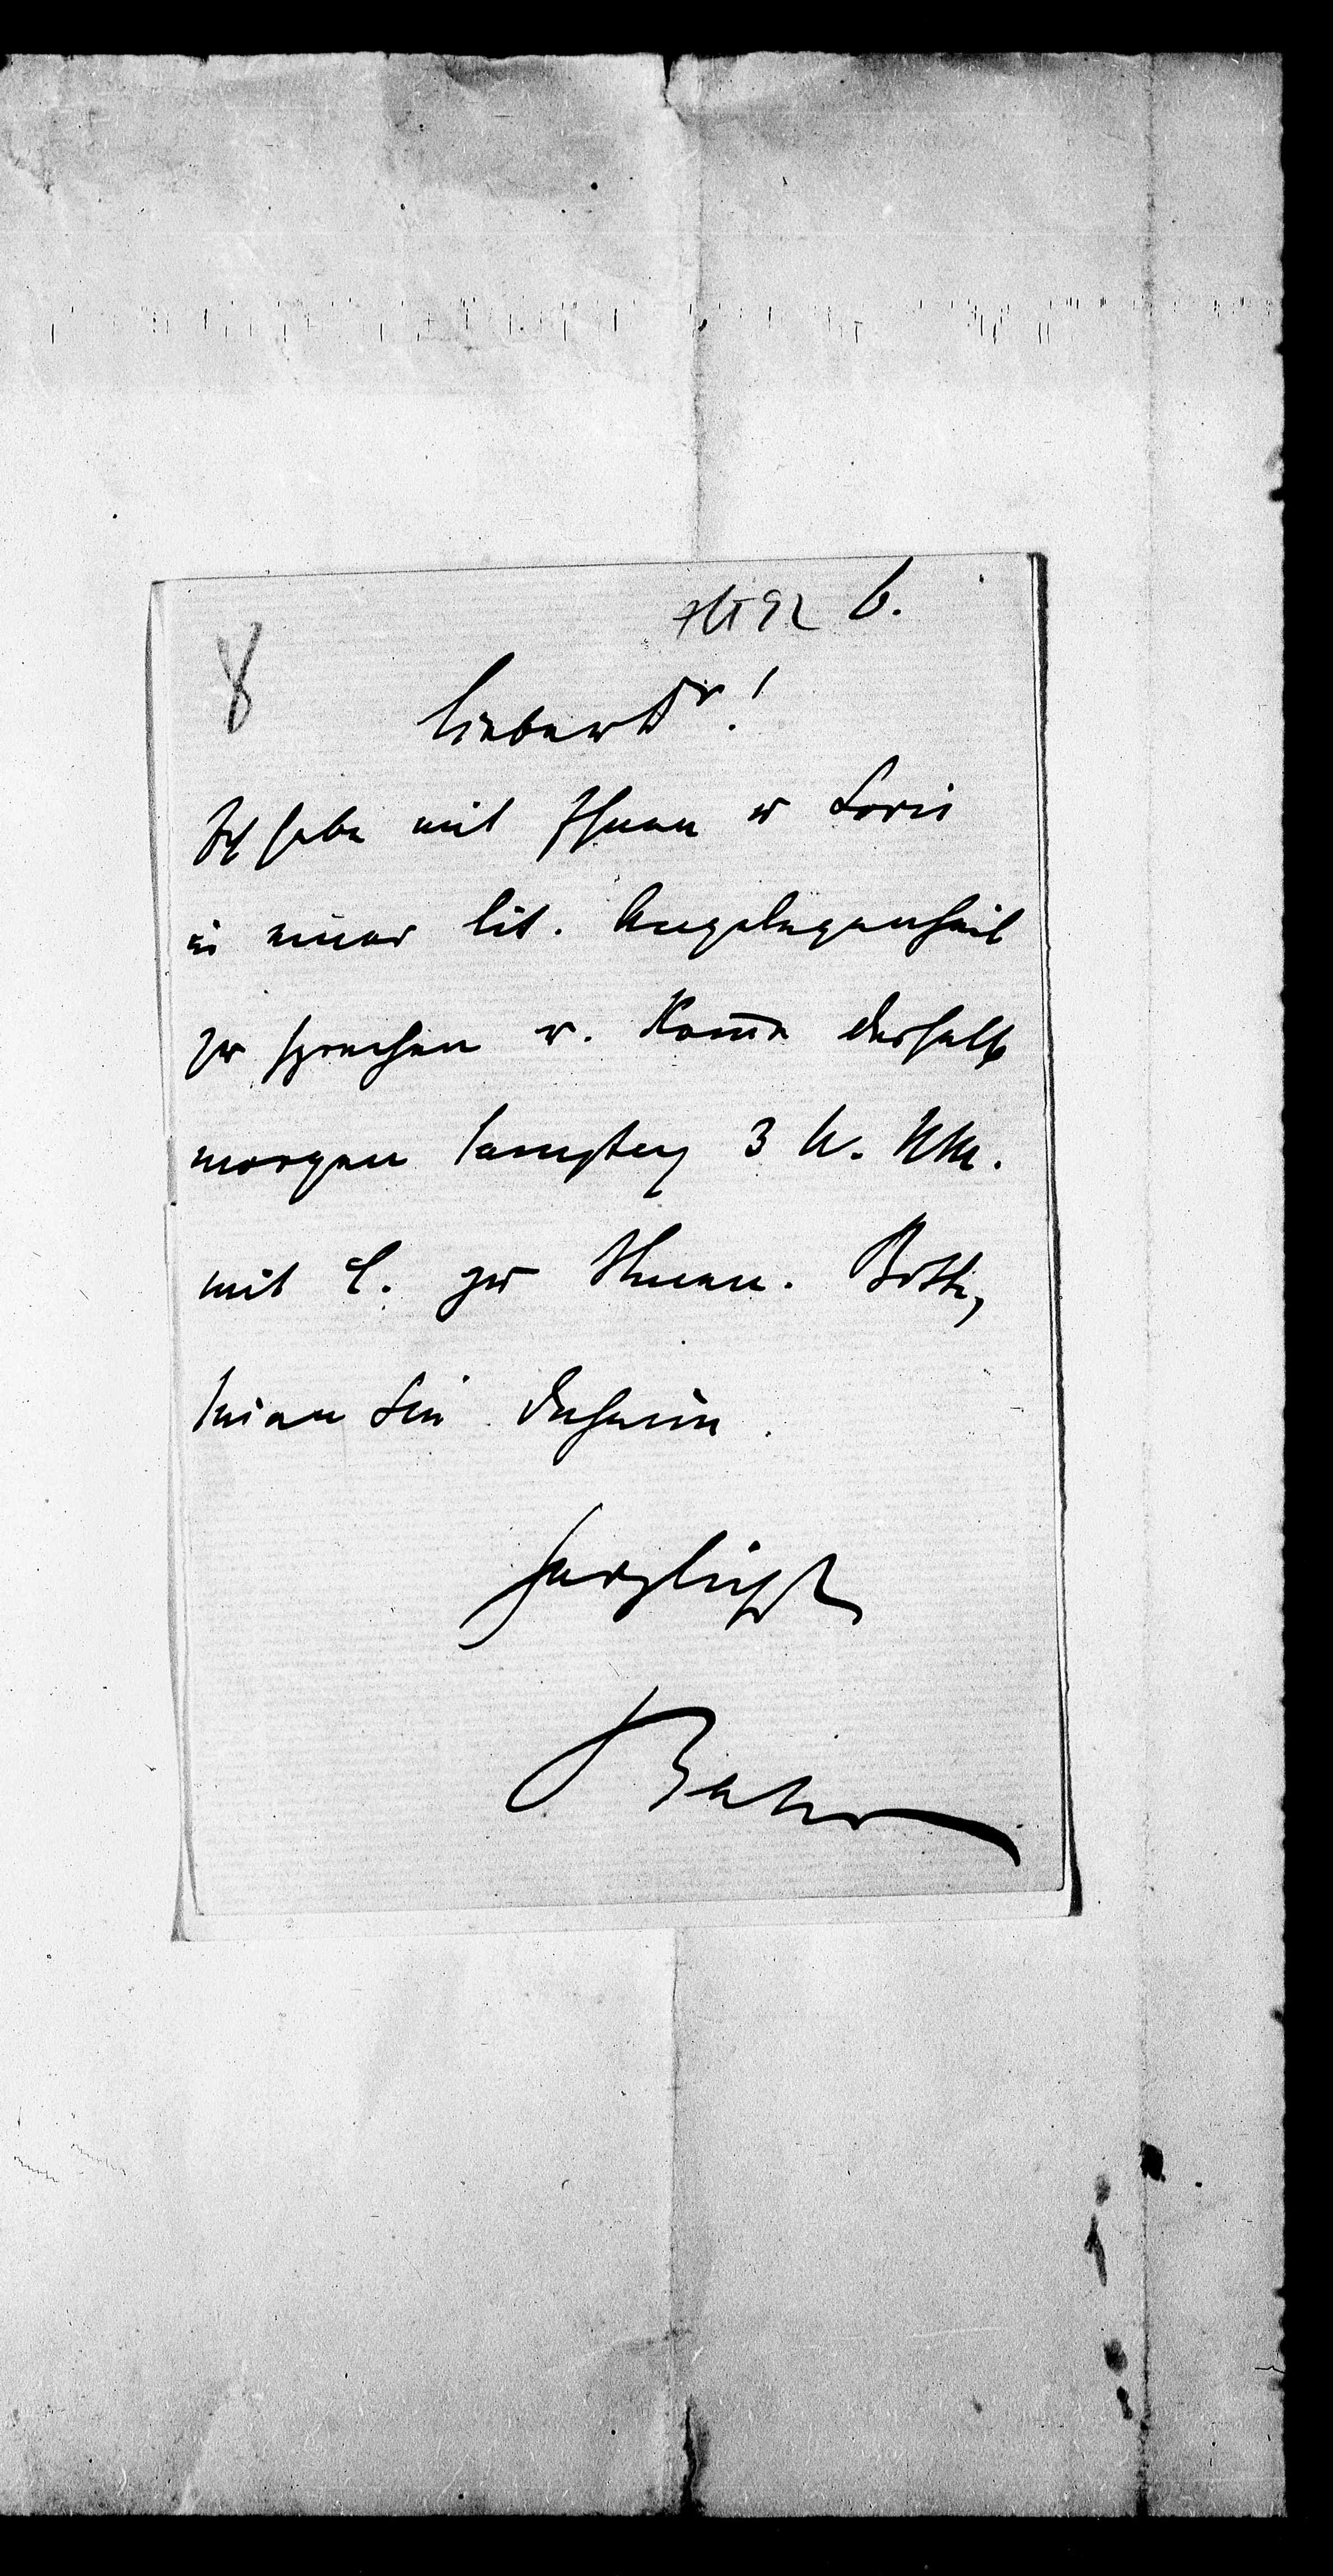 8
92 6.
Lieber Dr!
Ich habe mit Ihnen u Loris
in einer lit. Angelegenheit
zu sprechen u. kom̅e deshalb
morgen Samstag 3 U. NM.
mit L. zu Ihnen. Bitte,
seien Sie daheim.
Herzlichst
Bahr